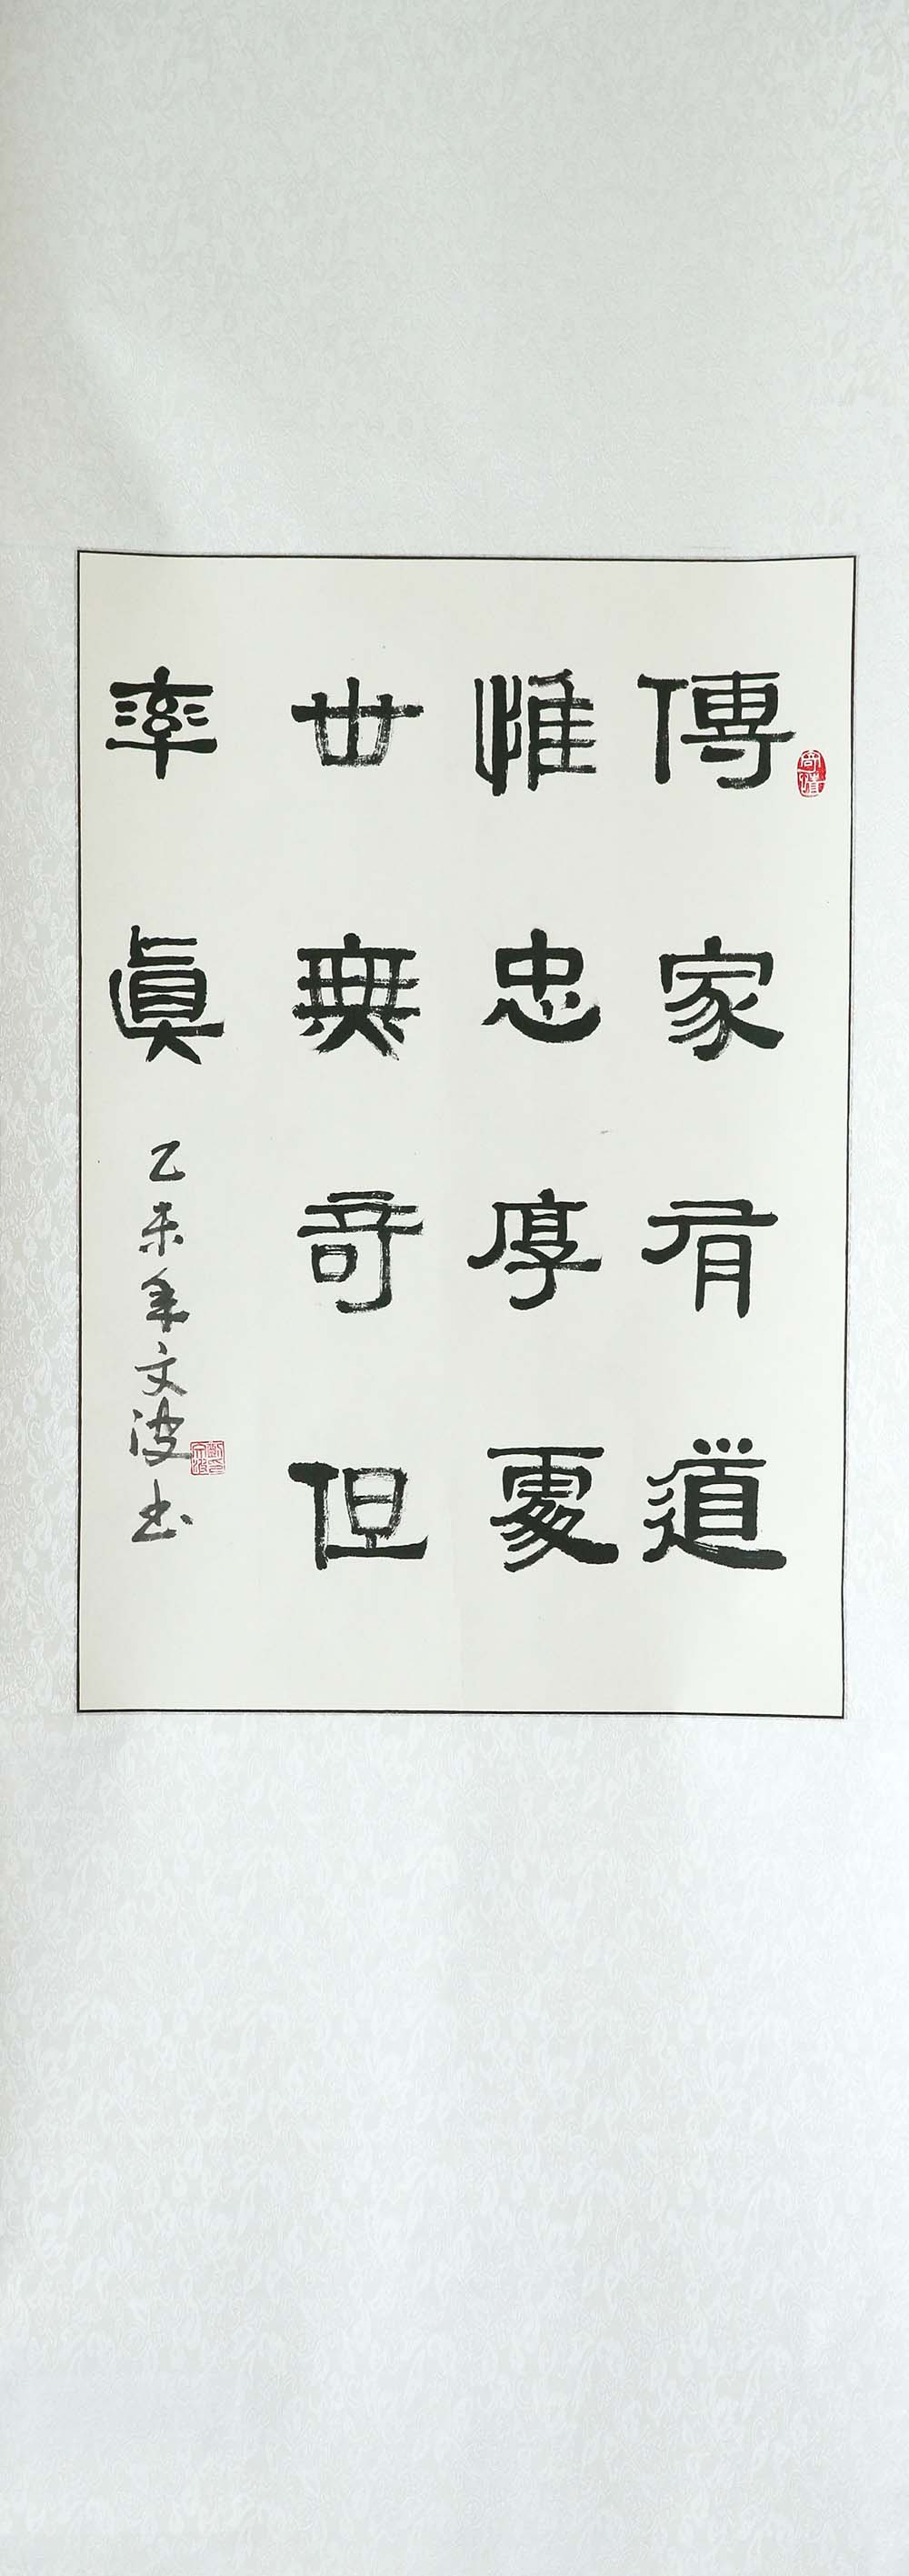 傳家有道
惟忠厚處
世無奇但
率眞
乙未年文波书